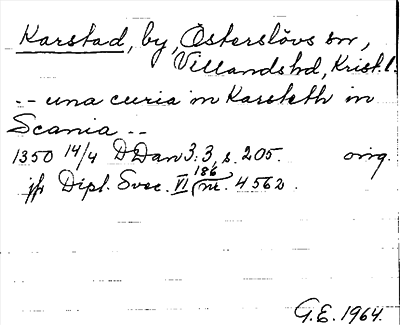 Karstad, by, Österslövs sn,
Villandshd, Krist.l.
-- una curia in Karsteth in
Scania --
1350 14/4 DDan 3.3, s. 205. orig.
jfr Dipl. Svec. VI (186 nr. 4562.
G.E. 1964.